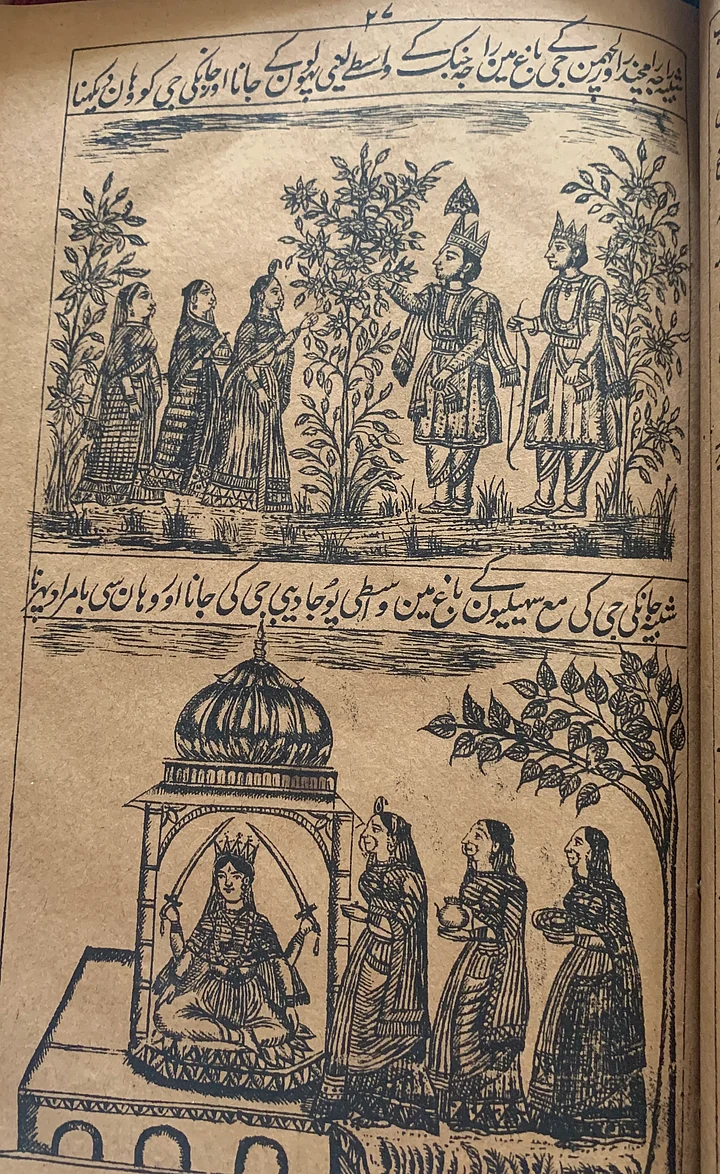 ۲۷
شبیہ راجہ رامچندر اور لچھمن جی باغ مین راجہ جنک کے واسطے لینی پہولون کے جانا اور جانکی جی کو وہان دیکہنا
شبیہ جانکی جی کی مع سہیلیون کے باغ مین واسطی پوُجا دیبی جی کی جانا اور وہان سی بامراد پہرنا